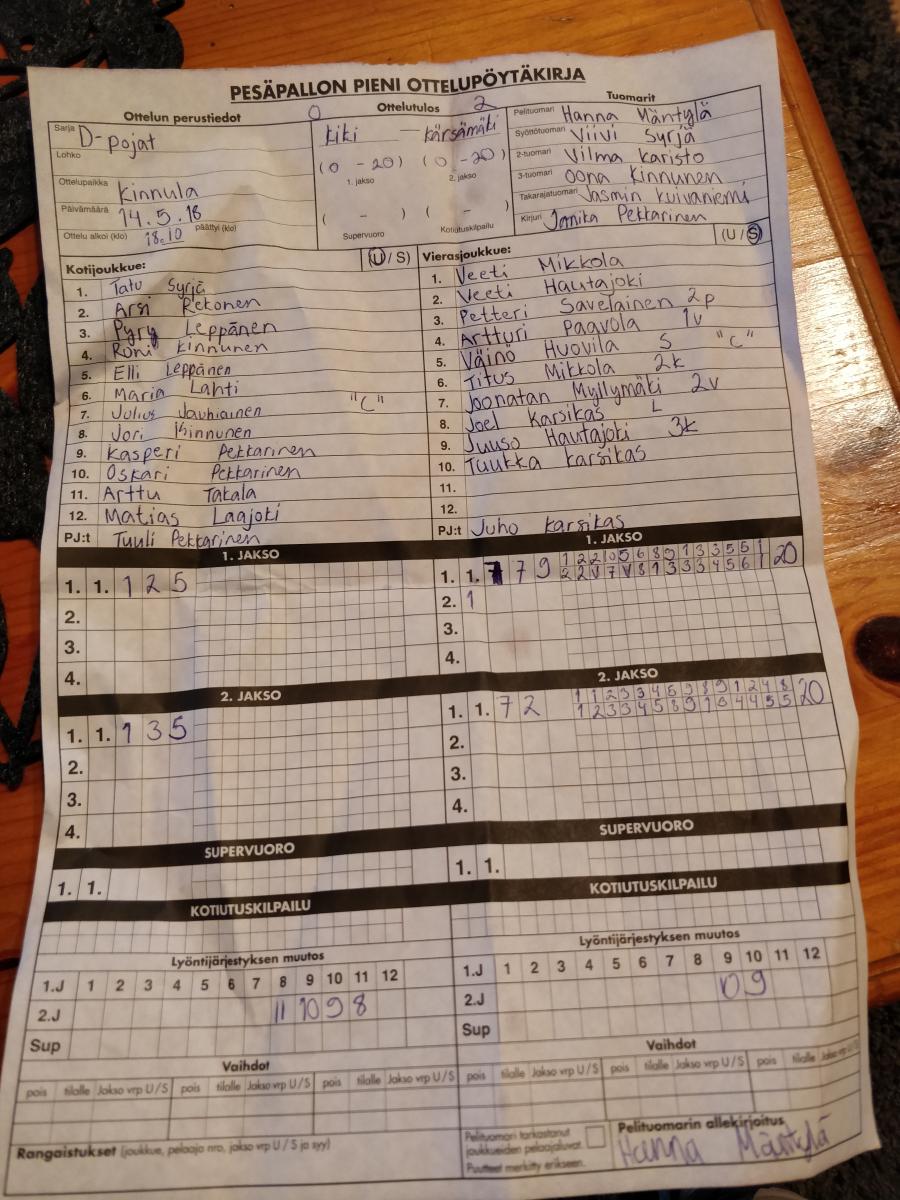 PESÄPALLON PIENI OTTELUPÖYTÄKIRJA
Ottelun perustiedot
Sarja D-pojat
Lohko
Ottelupaikka Kinnula
Päivämäärä 14.5.18
Ottelu alkoi (klo) 18.10 päättyi (klo)
Ottelutulos
0 2
kiki — kärsämäki
(0 - 20) (0 - 20)
1. jakso 2. jakso
( - ) ( - )
Supervuoro Kotiutuskilpailu
Tuomarit
Pelituomari Hanna Mäntylä
Syöttötuomari Viivi Syrjä
2-tuomari Vilma Karisto
3-tuomari Oona Kinnunen
Takarajatuomari Jasmin Kuivaniemi
Kirjuri Janika Pekkarinen
Kotijoukkue: (U / S)
1. Tatu Syrjä
2. Arsi Rekonen
3. Pyry Leppänen
4. Roni Kinnunen
5. Elli Leppänen
6. Maria Lahti
7. Julius Jauhiainen "C"
8. Jori Kinnunen
9. Kasperi Pekkarinen
10. Oskari Pekkarinen
11. Arttu Takala
12. Matias Laajoki
PJ:t Tuuli Pekkarinen
Vierasjoukkue: (U / S)
1. Veeti Mikkola
2. Veeti Hautajoki
3. Petteri Savelainen 2p
4. Artturi Paavola 1v
5. Väinö Huovila S "C"
6. Titus Mikkola 2k
7. Joonatan Myllymäki 2v
8. Joel Karsikas L
9. Juuso Hautajoki 3k
10. Tuukka Karsikas
11.
12.
PJ:t Juho Karsikas
1. JAKSO
1. 1. 1 2 5
2.
3.
4.
1. JAKSO
1. 1. 7 9 20
2. 1
3.
4.
2. JAKSO
1. 1. 1 3 5
2.
3.
4.
2. JAKSO
1. 1. 7 2 1 1 2 3 3 4 5 9 8 9 1 2 4 8 20
2.
3.
4.
SUPERVUORO
1. 1.
SUPERVUORO
1. 1.
KOTIUTUSKILPAILU
KOTIUTUSKILPAILU
Lyöntijärjestyksen muutos
1.J 1 2 3 4 5 6 7 8 9 10 11 12
2.J 11 10 9 8
Sup
Lyöntijärjestyksen muutos
1.J 1 2 3 4 5 6 7 8 9 10 11 12
2.J 10 9
Sup
Vaihdot
pois tilalle Jakso vrp U / S pois tilalle Jakso vrp U / S pois tilalle Jakso vrp U / S
Vaihdot
pois tilalle Jakso vrp U / S pois tilalle Jakso vrp U / S pois tilalle Jakso vrp U / S
Rangaistukset (joukkue, pelaaja nro, jakso vrp U / S ja syy)
Pelituomari tarkastanut
joukkueiden pelaajaluvat.
Puutteet merkitty erikseen.
Pelituomarin allekirjoitus
Hanna Mäntylä